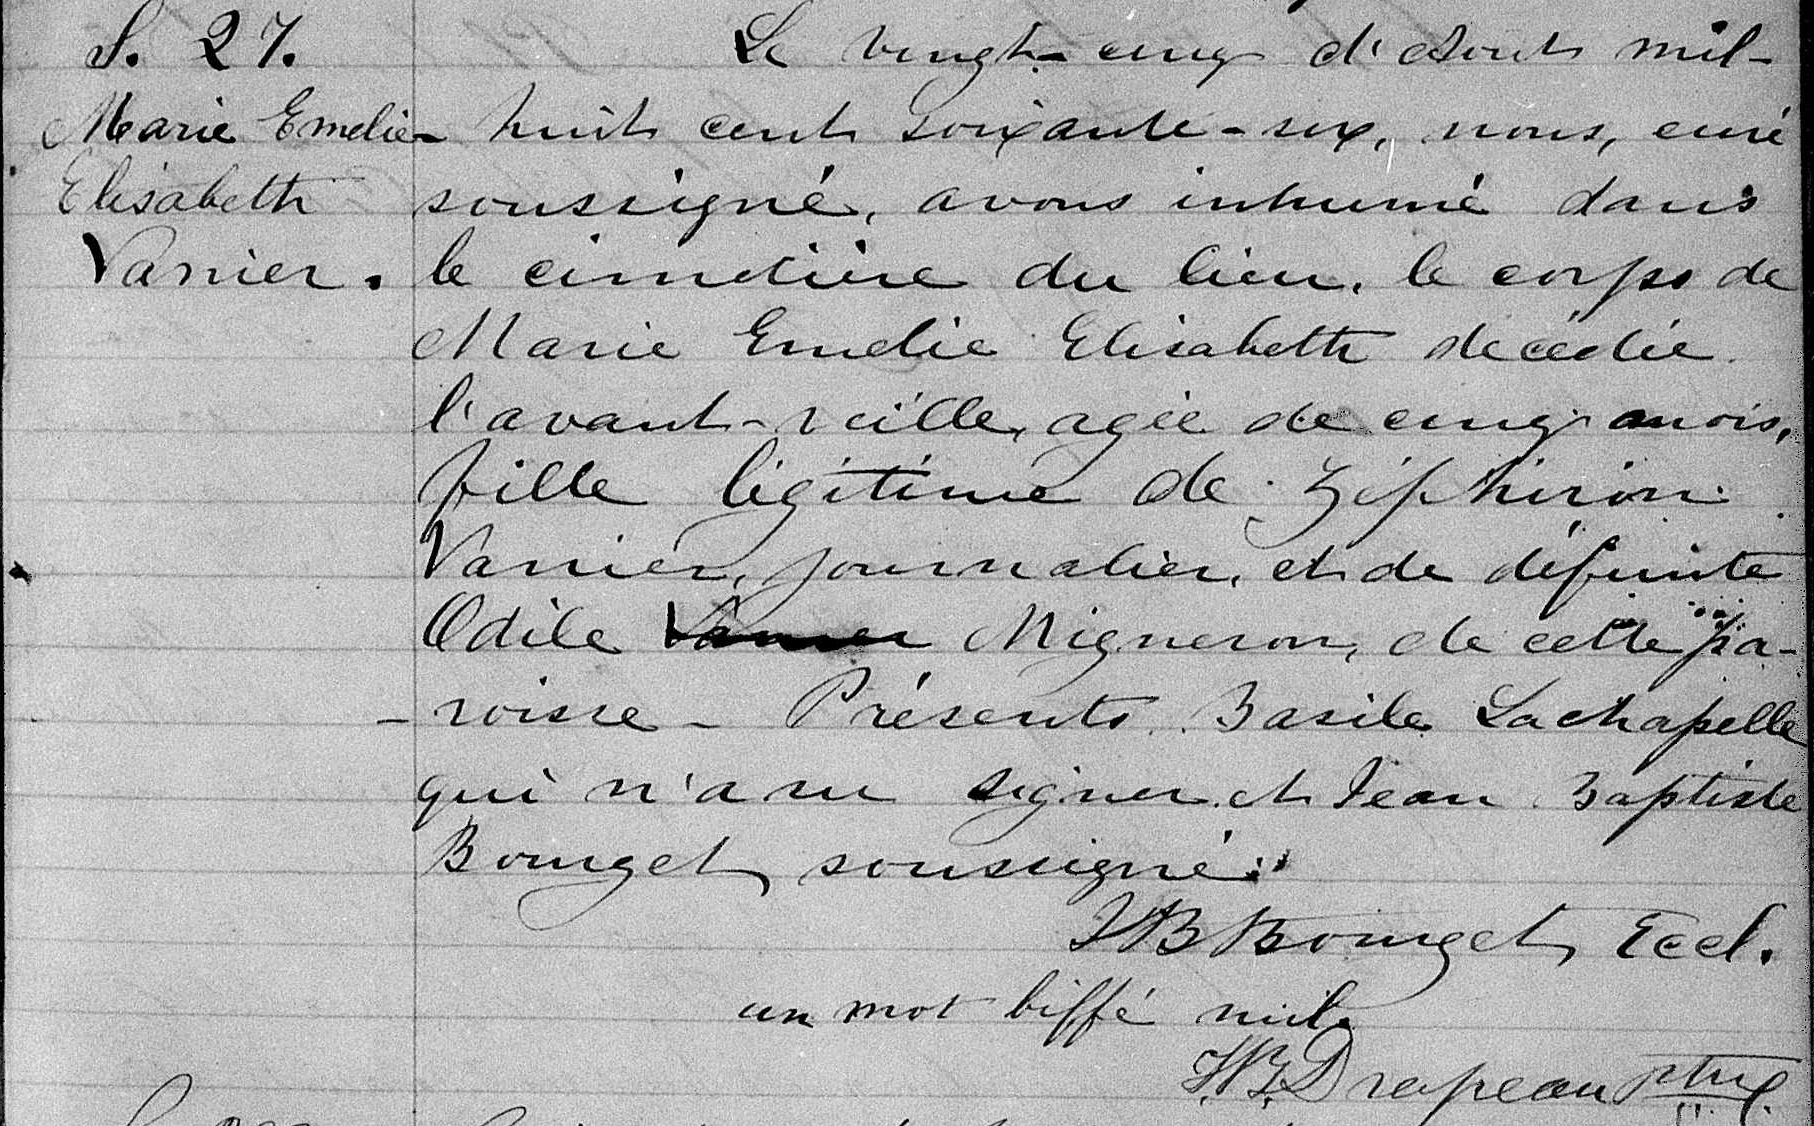 S. 27.
Marie Emelie
Elisabeth
Vanier.
Le vingt-cinq d'Aout mil-
huit cent soixante-six, nous, curé
soussigné, avons inhumé dans
le cimetière du lieu, le corps de
Marie Emelie Elisabeth décédée
l'avant-veille, agée de cinq mois,
fille légitime de Zéphiron
Vanier, journalier, et de défunte
Odile Vanier Migneron, de cette pa-
-roisse - Présents Basile Lachapelle
qui n'a su signer et Jean Baptiste
Bourget soussigné.
JB Bourget, Eccl.
un mot biffé nul.
Drapeau ptre